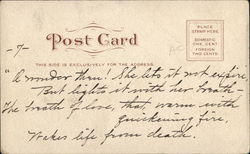 -7-
Post Card
PLACE
STAMP HERE
DOMESTIC
ONE CENT
FOREIGN
TWO CENTS
THIS SIDE IS EXCLUSIVELY FOR THE ADDRESS
"A wonder thou! She lets it not expire,
But lights it with her breath—
The breath of love, that, warm with
quickening fire,
Wakes life from death.